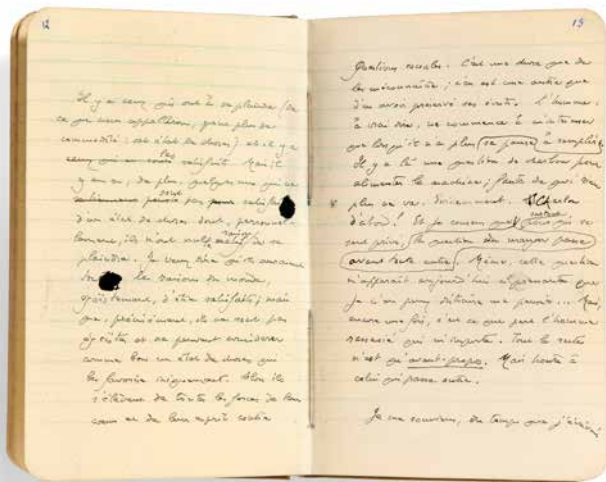 12
Il y a ceux qui ont à se plaindre (de
ce que nous appellerons, pour plus de
commodité : cet état de choses) et il y a
ceux qui en sont les satisfaits. Mais il
y en a, de plus, quelques uns qui ne
sont pas satisfaits
d'un état de choses dont, personnel-
lement, ils n'ont nulle raison de se
plaindre. Je veux dire qu'ils auraient
les raisons du monde,
égoïstement, d'être satisfaits ; mais
que, précisément, ils ne sont pas
égoïstes et ne peuvent considérer
comme bon un état de choses qui
les favorise uniquement. Alors ils
s'élèvent de toutes les forces de leur
cœur et de leur esprit contre
13
Questions sociales. C'est une chose que de
les méconnaître ; c'en est une autre que
d'en avoir préservé ses écrits. L'homme,
à vrai dire, ne commence à m'intéresser
que lorsqu'il n'a plus sa panse à remplir.
Il y a là une question de charbon pour
alimenter la machine ; faute de quoi rien
plus ne va. Evidemment. Charbon
d'abord ! Et je conçois que pour qui se
sent privé, la question du manger passe
avant toute autre. Même, cette question
m'apparaît aujourd'hui si que
je n'en puis distraire ma pensée... Mais,
encore une fois, c'est ce que pense l'homme
rassasié qui m'importe. Tout le reste
n'est qu'avant-propos. Mais honte à
celui qui passe outre.
Je me souviens, du temps que j'